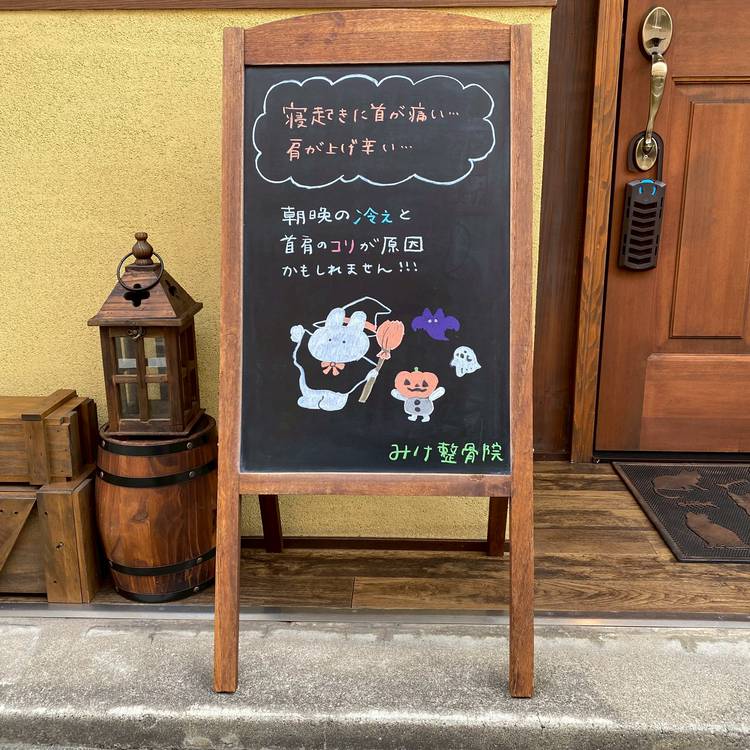 寝起きに首が痛い…
肩が上げ辛い…
朝晩の冷えと
首肩のコリが原因
かもしれません!!!
みけ整骨院